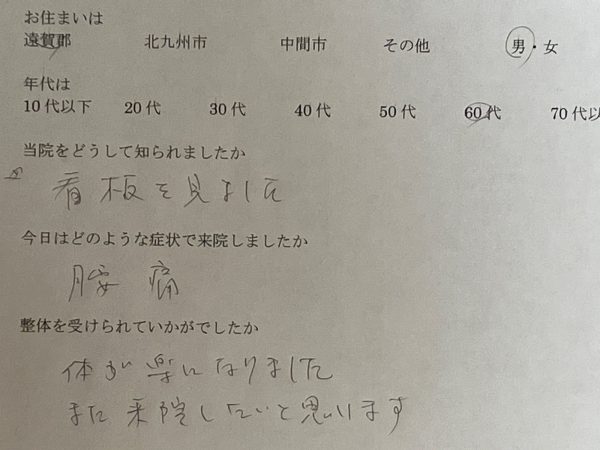 お住まいは
遠賀郡 北九州市 中間市 その他 男・女
年代は
10代以下 20代 30代 40代 50代 60代 70代以
当院をどうして知られましたか
看板を見ました
今日はどのような症状で来院しましたか
腰痛
整体を受けられていかがでしたか
体が楽になりました
また来院したいと思います